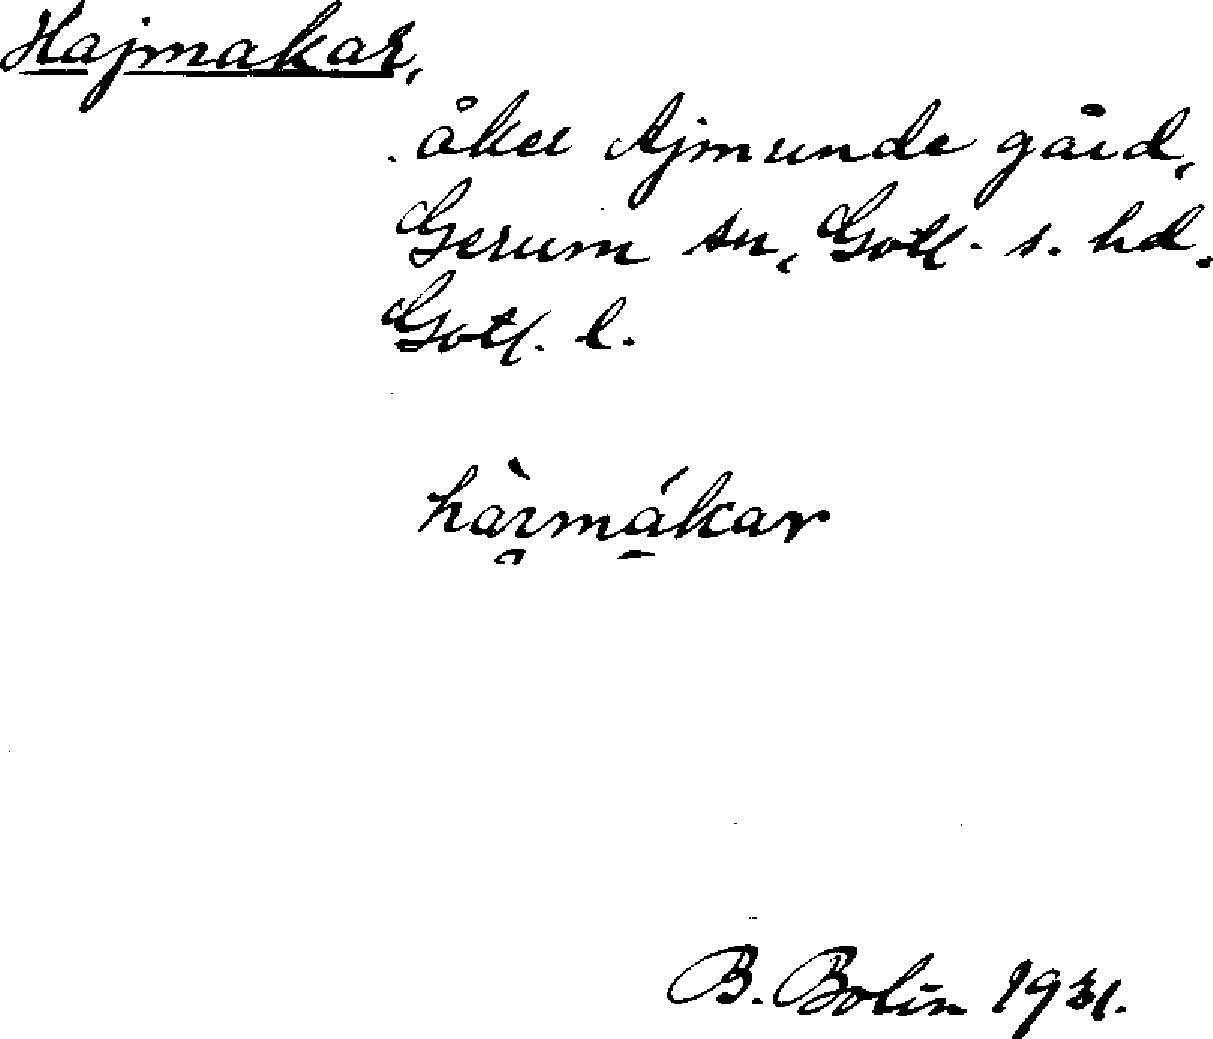 Hajmakar,
åker Ajmunde gård,
Gerum sn, Gotl. s. hd.
Gotl. l.
hàɪmákar
B. Bolin 1931.